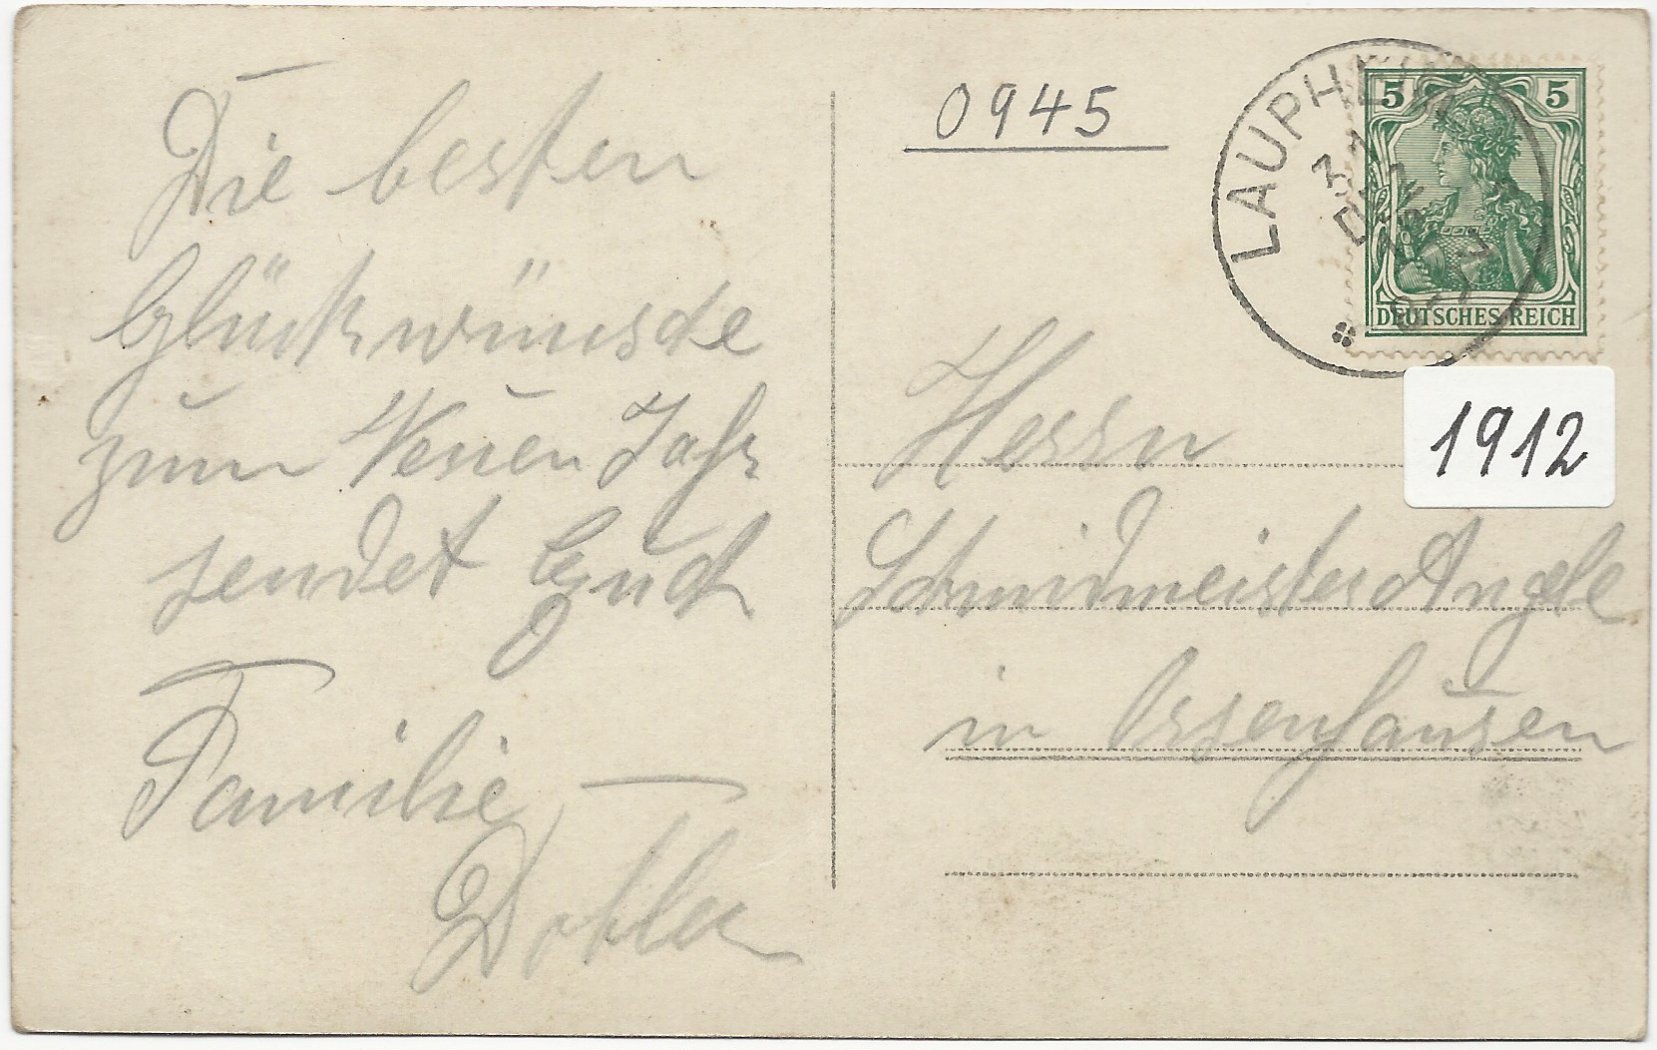 Die besten
Glückwünsche
zum Neuen Jahr
sendet Euch
Familie
Dobler
0945
LAUPHEIM
31
DEZ
12
5 5
DEUTSCHES REICH
1912
Herrn
Schmidmeister Angele
in Orsenhausen